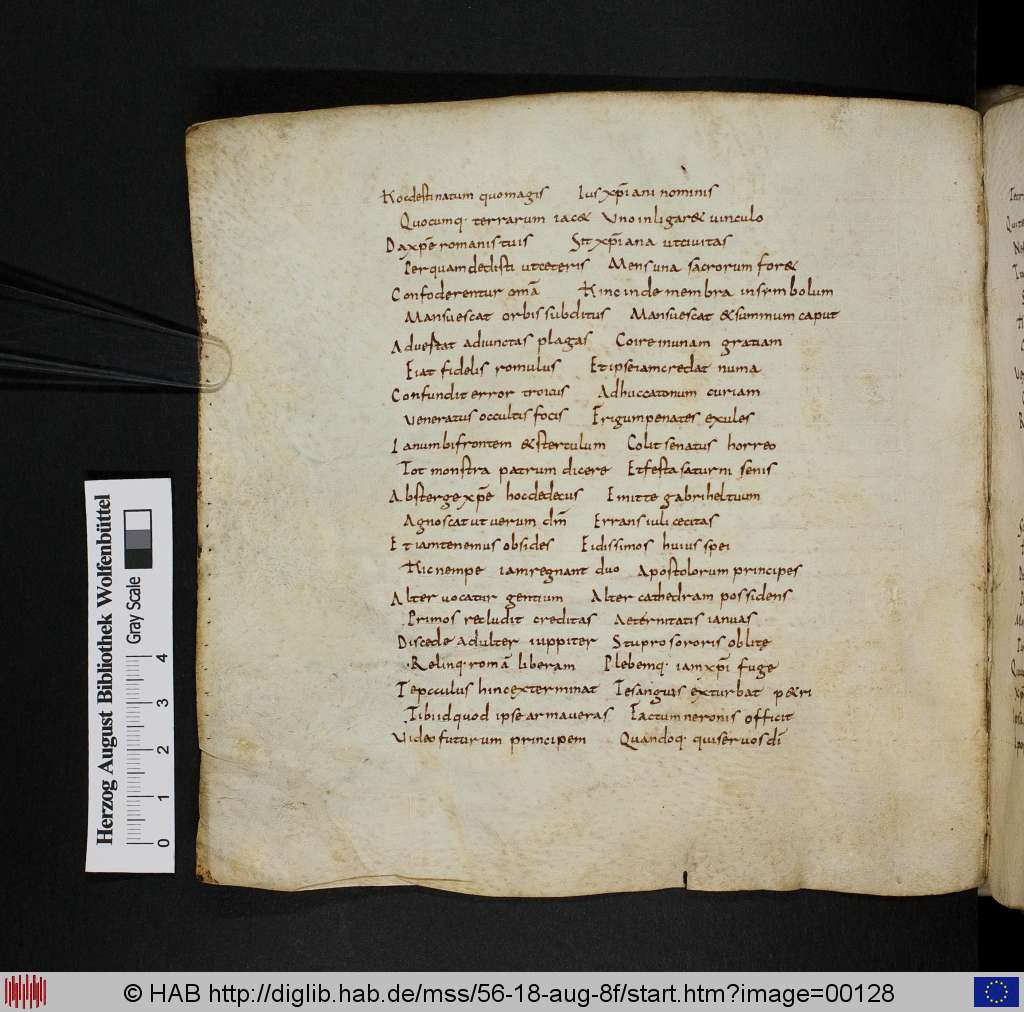 Hoc destinatum quomagis Ius xp̅iani nominis
Quocumq· terrarum iac& Uno inligar& uinculo
Da xp̅e romanis tuis Sit xp̅iana ut ciuitas
Per quam dedisti ut ceteris Mens una sacrorum for&
Confoderentur om̅a Hinc inde membra in symbolum
Mansuescat orbis subditus Mansuescat & summum caput
Aduertat adiunctas plagas Coire in unam gratiam
Fiat fidelis romulus Et ipse iam credat numa
Confundit error troicus Adhuc catonum curiam
Veneratus occultis focis Frigum penates exules
Ianum bifrontem & sterculum Colit senatus horreo
Tot monstra patrum dicere Et festa saturni senis
Absterge xp̅e hoc dedecus Emitte gabrihel tuum
Agnoscat ut uerum dm̅ Errans iuli cecitas
Et iam tenemus obsides Fidissimos huius spei
Hic nempe iam regnant duo Apostolorum principes
Alter uocatur gentium Alter cathedram possidens
Primos recludit creditas Aeternitatis ianuas
Discede adulter iuppiter Stupro sororis oblite
Relinq· romā liberam Plebemq· iam xp̅i fuge
Te pcculus hinc exterminat Te sanguis exturbat p&ri
Tibi id quod ipse armaueras Factum neronis officit
Video futurum principem Quandoq· qui seruos di̅
Herzog August Bibliothek Wolfenbüttel
Gray Scale
0 1 2 3 4
© HAB http://diglib.hab.de/mss/56-18-aug-8f/start.htm?image=00128